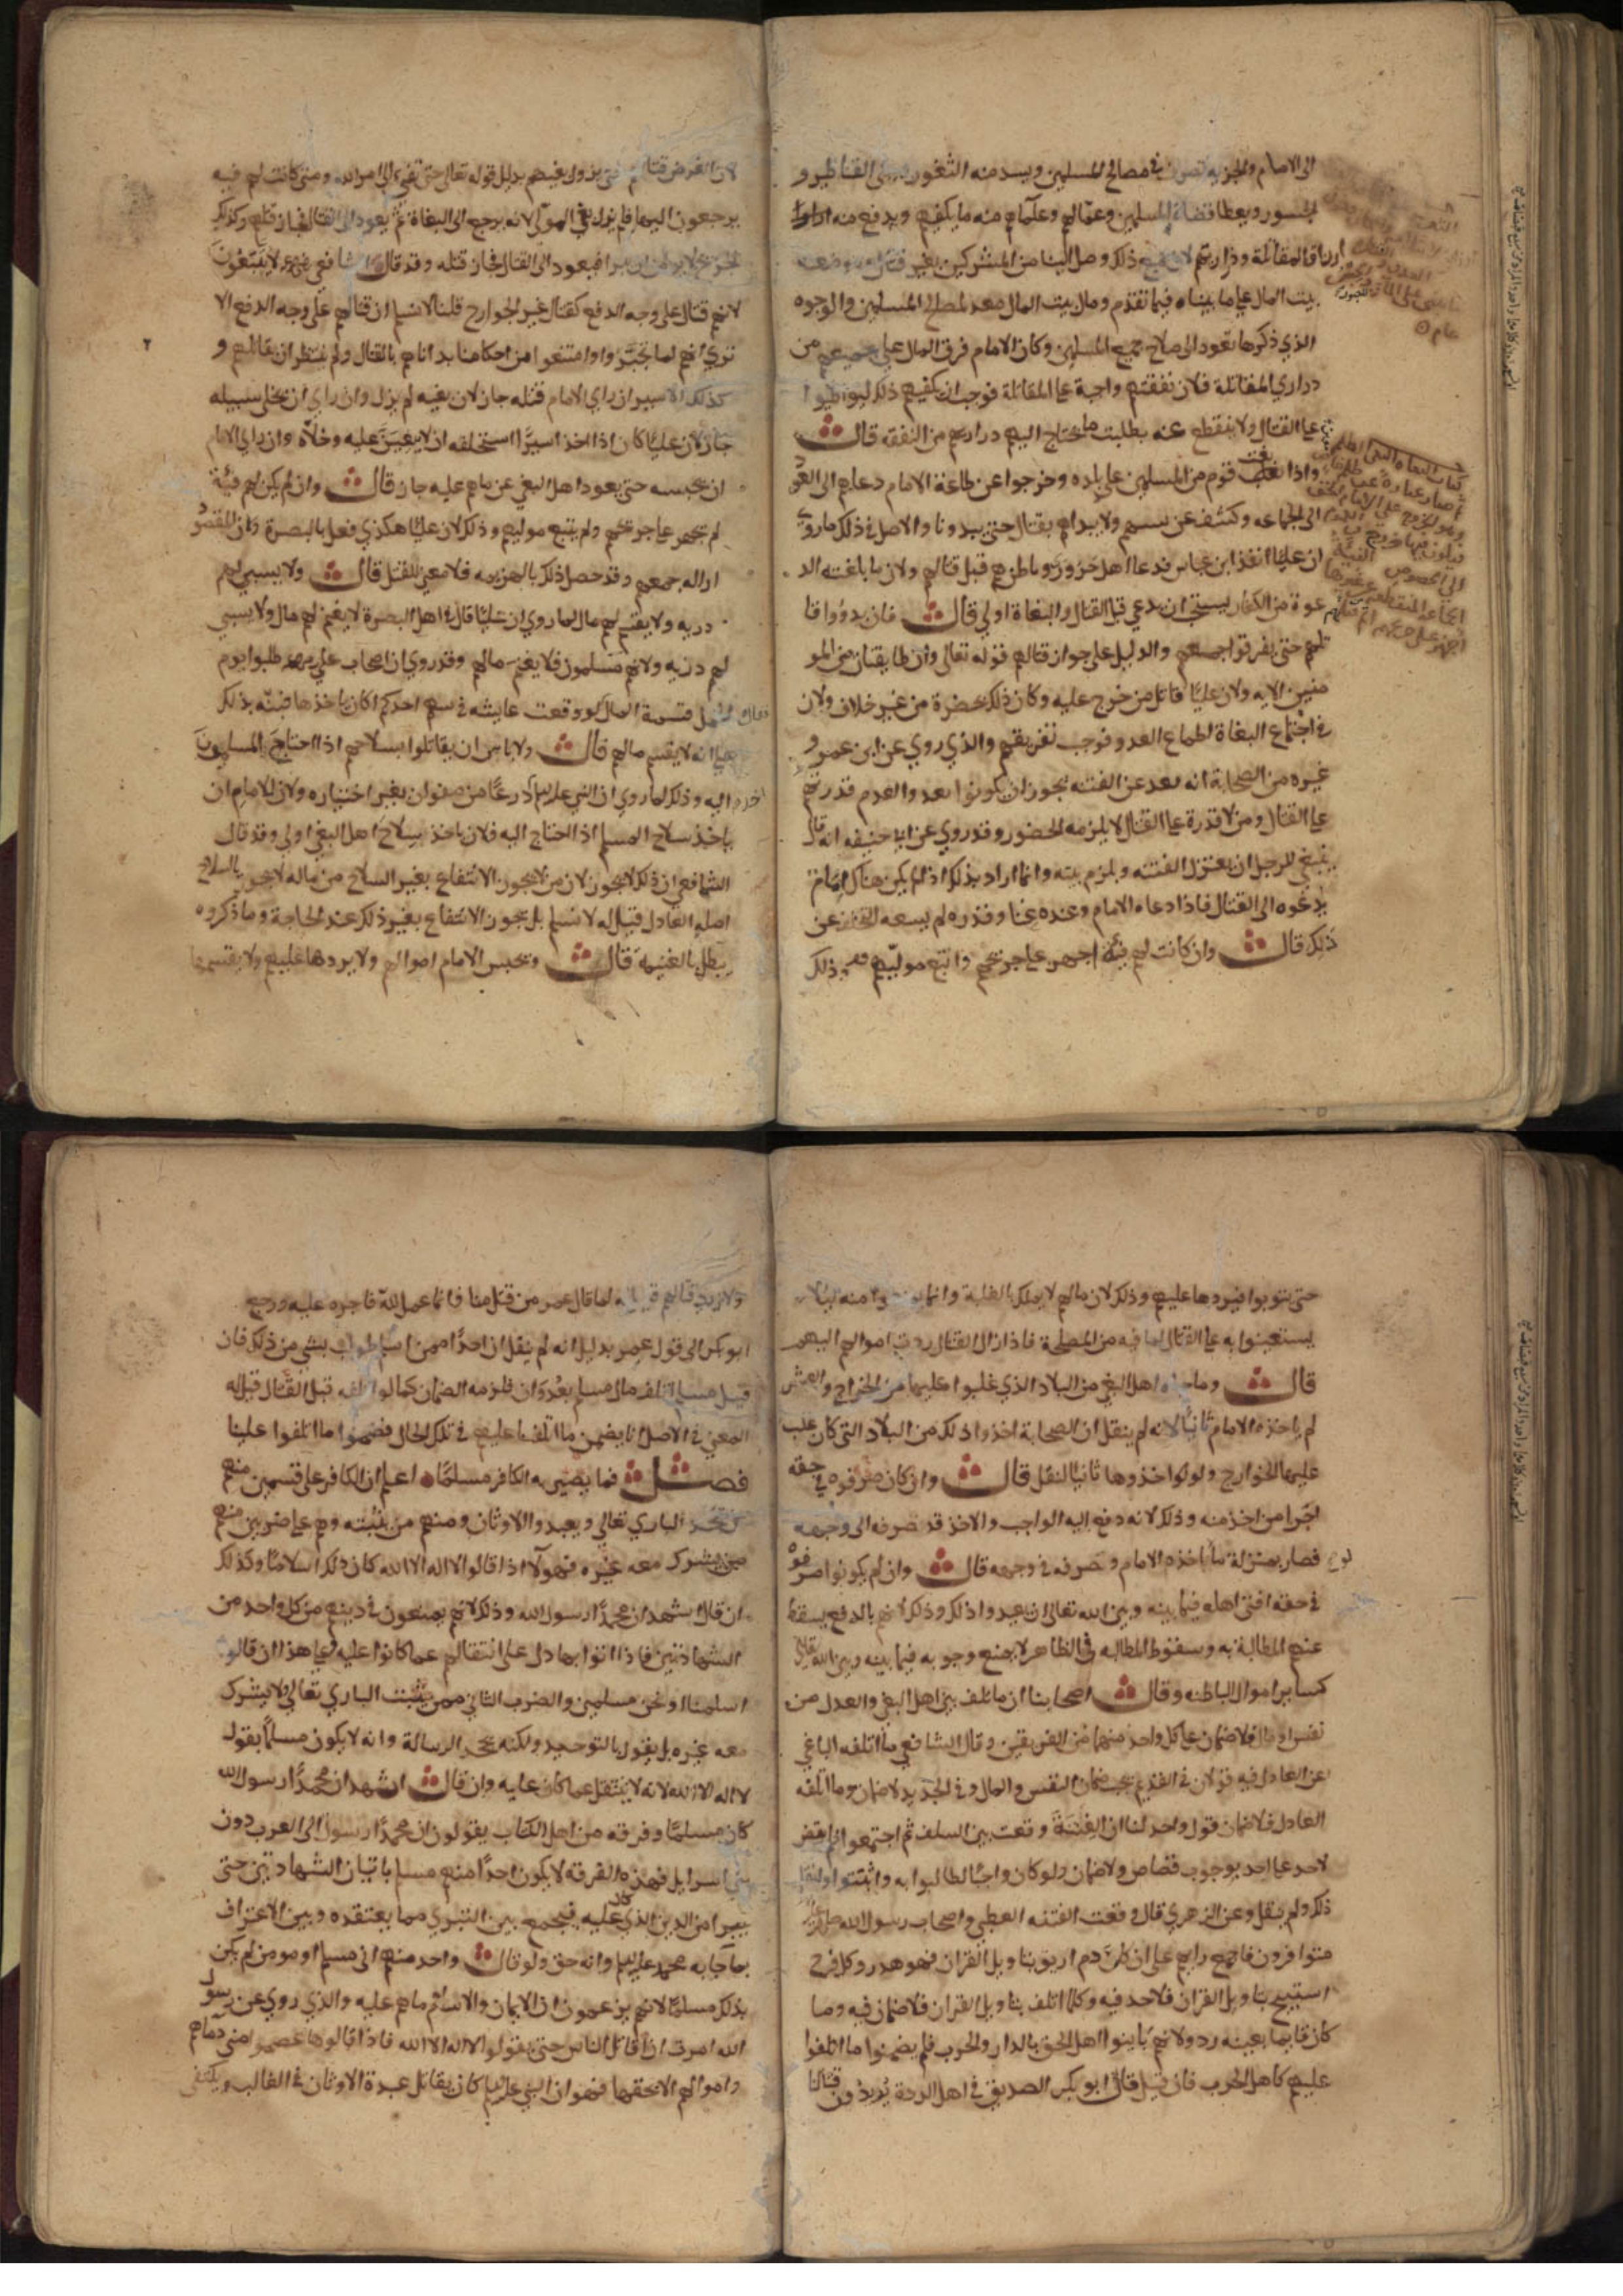 الى الامام والجزيه تصرف في مصالح المسلمين ويسد منه الثغور ويبنى القناطر و
الجسور ويعطا قضاة المسلمين وعمّالهم وعلماهم منه ما يكفيهم ويدفع منه
ارزاق المقاتلة وذراريهم لان جميع ذلك وصل الينا من المشركين بغير قتال
بيت المال على ما بيناه فيما تقدم ومال بيت المال معد لمصالح المسلمين والوجوه
الذي ذكرها تعود الى صلاح جميع المسلمين وكان الامام فرق المال على جميعهم من
دراري المقاتلة فلان نفقتهم واجبة على المقاتلة فوجب ان يكفيهم ذلك ليواظبوا
على القتال ولا ينقطع عنه بطلب ما يحتاج اليه دراريهم من النفقه قال
واذا تغلب قوم من المسلمين على بلده وخرجوا عن طاعة الامام دعاهم الى العود
الى الجماعه وكشف عن سببهم ولا يبداهم بقتال حتى يبدونا والاصل في ذلك ما روي
ان عليّا انفذ ابن عباس فدعا اهل حرورو وناظرهم قبل قتالهم ولان ما بلغته الد
عوة من الكفار يستحب ان يدعي قبل القتال والبغاة اولى قال فان بدؤوا قا
تلهم حتى يفرقوا جمعهم والدليل على جواز قتالهم قوله تعالى وان طايفتان من المو
منين الايه ولان عليّا قاتل من خرج عليه وكان ذلك بحضرة من غير خلاف ولان
في اجتماع البغاة اطماع العدو فوجب تفريقهم والذي روي عن ابن عمر و
غيره من الصحابة انه بعد عن الفتنه يجوز ان يكونوا بعد والعدم قدرتهم
على القتال ومن لا قدرة على القتال لا يلزمه الحضور وقد روي عن ابا حنيفه انه قال
ينبغي للرجل ان يعتزل الفتنه ويلزم بيته وانما اراد بذلك اذا لم يكن هناك امام
يدعوه الى القتال فاذا دعاه الامام وعنده غنا وقدره لم يسعه التخلف عن
ذلك قال وان كانت لهم فئة اجهز على جريحهم واتبع موليهم ذلك
لان الغرض قتالهم حتى يزول فيهم بدليل قوله تعالى حتى تفي الى امر الله ومتى كانت لهم فيه
يرجعون اليها فلم يزل بغي المولّي لانه يرجع الى البغاة ثم يعود الى القتال فجاز قتلهم وكذلك
فيعود الى القتال فجاز قتله وقد قال الشافعي
لانهم قتال على وجه الدفع كقتال غير الخوارج قلنا لا نسلم ان قتالهم على وجه الدفع الا
تري انهم لما تجيزوا وامتنعوا من احكامنا بداناهم بالقتال ولم ينتظر ان يقاتلهم و
كذلك الاسير ان راي الامام قتله جاز لان بغيه لم يزل وان راي ان يخلى سبيله
جاز لان عليّا كان اذا اخذ اسيرًا استحلفه ان لا يعين عليه وخلاه وان راي الامام
ان يحبسه حتى يعود اهل البغي عن ما هم عليه جاز قال وان لم يكن لهم فئة
لم يجهز على جريحهم ولم يتبع موليهم وذلك لان عليّا هكذي فعل بالبصرة ولان المقصود
ازاله جمعهم وقد حصل ذلك بالهزيمه فلا معنى للقتل قال ولا يسبي لهم
دريه ولا يقسم لهم مال لما روي ان عليّا قال في اهل البصرة لا يغنم لهم مال ولا يسبي
لهم دريه ولانهم مسلمون فلا يغنم مالهم وقد روي ان اصحاب علي طلبوا يوم
الجمل قسمة المال لو وقعت عايشه في سهم احدكم اكان ياخذها فنبّه بذلك
على انه لا يقسم مالهم قال ولا باس ان يقاتلوا بسلاحهم اذا احتاج المسلمون
اليه وذلك لما روي ان النبي عليه السلم اخذ درعًا من صفوان بغير اختياره ولان للامام ان
ياخذ سلاح المسلم اذا احتاج اليه فلان ياخذ بسلاح اهل البغي اولى وقد قال
الشافعي ان ذلك لا يجوز لان من لا يجوز الانتفاع بغير السلاح من ماله لا يجوز بالسلاح
اصله العادل قيل له لا نسلم بل يجوز الانتفاع بغير ذلك عند الحاجة وما ذكروه
يبطل بالغنيمه قال وتحبس الامام اموالهم ولا يردها عليهم ولا يقسمها
حتى يتوبوا فيردها عليهم وذلك لان مالهم لا يملك بالغلبة وانما منه ليلا
يستعينوا به على القتال لما فيه من المصلحة فاذا زال القتال ردت اموالهم اليهم
قال وما جباه اهل البغي من البلاد الذي غلبوا عليها من الخراج والعشر
لم ياخذه الامام ثانيًا لانه لم ينقل ان الصحابة اخذوا ذلك من البلاد التي كان غلب
عليها الخوارج ولو اخذوها ثانيًا لنقل قال وان كان صرفوه في حقه
اجزا من اخذ منه وذلك لانه دفع اليه الواجب والاخذ قد صرفه الى وجهه
فصار بمنزلة ما ياخذه الامام وصرفه في وجهه قال وان لم يكونوا صرفوه
في حقه افتى اهله فيما بينه وبين الله تعالى ان يعيدوا ذلك وذلك لانهم بالدفع يسقط
عنهم المطالبة به وسقوط المطالبه في الظاهر لا يمنع وجوبه فيما بينه وبين الله تعالى
كساير اموال الباطنه وقال اصحابنا ان ما تلف بين اهل البغي والعدل من
نفس او مال فلا ضمان على كل واحد منهما من الفريقين وقال الشافعي ما اتلفه الباغي
عن العادل فيه قولان في القديم يجب ضمان النفس والمال وفي الجديد لا ضمان وما اتلفه
العادل فلا ضمان قول واحد لنا ان الفتنة وقعت بين السلف ثم اجتمعوا فلم يقض
لاحد على احد بوجوب قصاص ولا ضمان ولو كان واجبًا لطالبوا به واثبتوا ولنقل
ذلك ولم ينقل وعن الزهري قال وقعت الفتنه العظمى واصحاب رسول الله
متوافرون فاجمع رايهم على ان كل دم اريق بتاويل القران فهو هدر وكل فرج
استبيح بتاويل القران فلا حد فيه وكل ما اتلف بتاويل القران فلا ضمان فيه وما
كان قايما بعينه رد ولانهم باينوا اهل الحق بالدار والحرب فلم يضمنوا ما اتلفوا
عليهم كاهل الحرب فان قيل قال ابو بكر الصديق في اهل الردة يدون قتلانا
ولا ندي قتالهم قيل له لما قال عمر من قتل منا فانما عمل لله فاجره عليه ورجع
ابو بكر الى قول عمر بدليل انه لم ينقل ان احدًا ممن اسلم طولب بشي من ذلك فان
قيل مسلم اتلف مال مسلم بعدوان فلزمه الضمان كما لو اتلفه قبل القتال قيل له
المعنى في الاصل انا يضمن ما اتلفنا عليهم في تلك الحال فضمنوا ما اتلفوا علينا
فصل فما يصير به الكافر مسلمًا اعلم ان الكافر على قسمين منهم
من يجحد الباري تعالى ويعبد والاوثان ومنهم من يثبته وهم على ضربين منهم
من يشرك معه غيره فهولا اذا قالوا لا اله الا الله كان ذلك اسلامًا وكذلك
ان قال اشهد ان محمدًا رسول الله وذلك لانهم يمتنعون في دينهم من كل واحد من
الشهادتين فاذا اتوا بها دل على انتقالهم عما كانوا عليه وعلى هذا ان قالو
اسلمنا او نحن مسلمين والضرب الثاني ممن يثبت الباري تعالى ولا يشرك
معه غيره بل يقول بالتوحيد ولكنه يجحد الرسالة وانه لا يكون مسلمًا بقول
لا اله الا الله لانه لا ينتقل عما كان عليه وان قال اشهد ان محمدًا رسول الله
كان مسلمًا وفرقه من اهل الكتاب يقولون ان محمدًا رسول الى العرب دون
بني اسرايل فهذه الفرقه لا يكون احدًا منهم مسلم باتيان الشهادتين حتى
يبرا من الدين الذي كان عليه فيجمع بين التبري مما يعتقده وبين الاعتراف
بما جا به محمد عليه السلم وانه حق ولو قال واحد منهم اني مسلم او مومن لم يكن
بذلك مسلمًا لانهم يزعمون ان الايمان والاسلام ما هم عليه والذي روي عن رسول
الله امرت ان اقاتل الناس حتى يقولوا لا اله الا الله فاذا قالوها عصموا مني دماهم
واموالهم الا بحقها فهو ان النبي عليه السلم كان يقاتل عبدة الاوثان في الغالب ويكتفى